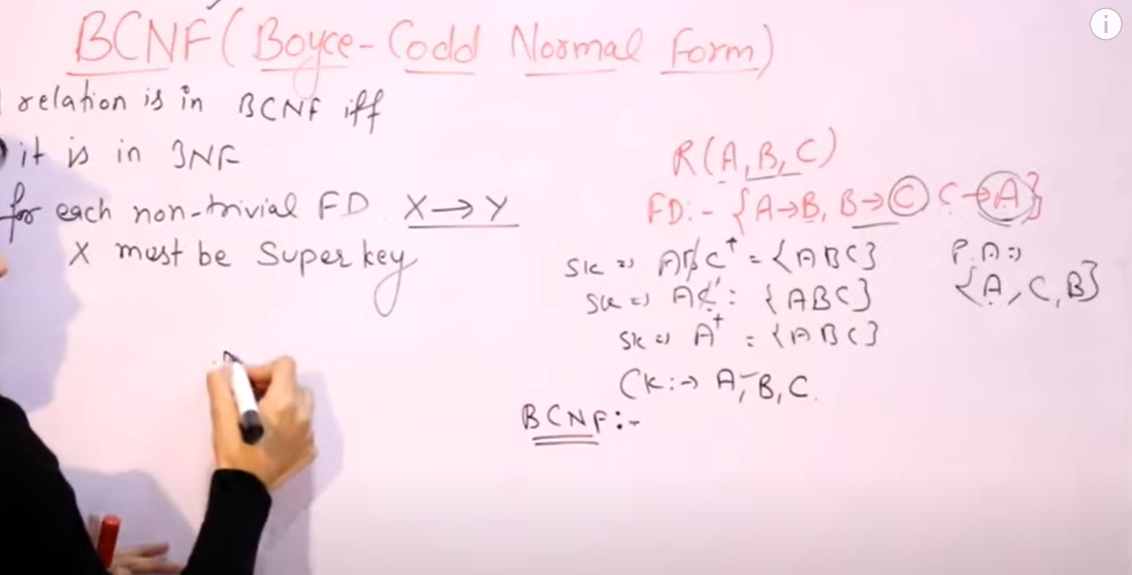 BCNF (Boyce-Codd Normal Form)
relation is in BCNF iff
it is in 3NF
for each non-trivial FD X→Y
X must be Super key
R(A,B,C)
FD:- {A→B, B→C C→A}
SK => ABC⁺ = {ABC}
SK => AC⁺: {ABC}
SK => A⁺ = {ABC}
CK:→ A, B, C.
P.A =>
{A, C, B}
BCNF:-
i